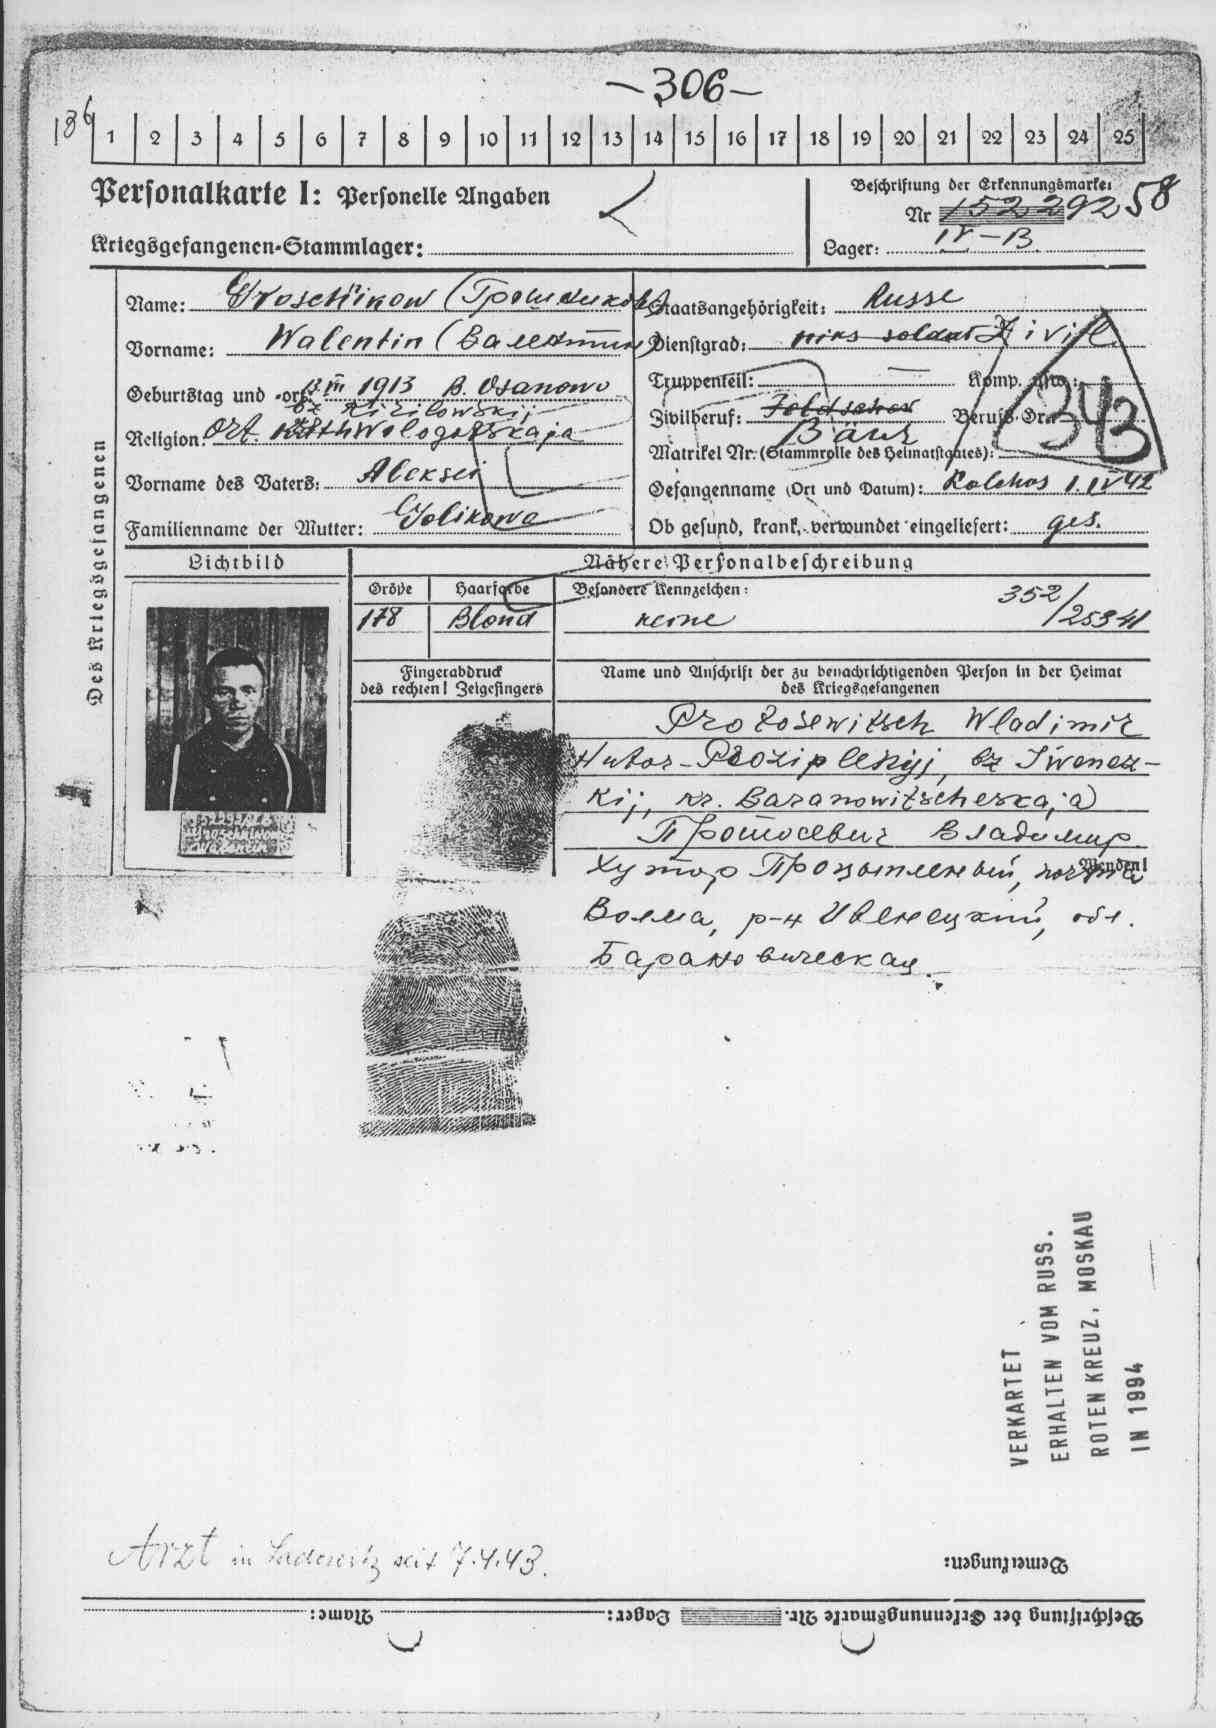 -306-
186
1 2 3 4 5 6 7 8 9 10 11 12 13 14 15 16 17 18 19 20 21 22 23 24 25
Personalkarte I: Personelle Angaben
Beschriftung der Erkennungsmarke:
Nr 152 292 58
Kriegsgefangenen-Stammlager:
Lager: IV-B
Des Kriegsgefangenen
Name: Groschikow (Грошиков)
Staatsangehörigkeit: Russe
Vorname: Walentin (Валентин)
Dienstgrad: soldat Zivil
Truppenteil: — Komp. usw.:
Geburtstag und -ort: III 1913 B. Osanowo
bz Kirilowskij
Zivilberuf: Beruf-Gr.:
343
Religion: ort Wologotskaja
Bäur
Matrikel Nr. (Stammrolle des Heimatstaates):
Vorname des Vaters: Aleksei
Gefangenname (Ort und Datum): Kolchos 1.IV 42
Familienname der Mutter: Golikowa
Ob gesund, krank, verwundet eingeliefert: ges.
Lichtbild
Nähere Personalbeschreibung
Größe Haarfarbe Besondere Kennzeichen:
178 Blond keine
352/25341
Fingerabdruck
des rechten! Zeigefingers
Name und Anschrift der zu benachrichtigenden Person in der Heimat
des Kriegsgefangenen
Protosewitsch Wladimir
Hutor-Proziplenyj, bz Iwenez-
kij, kr. Baranowitscheskaja)
Протосевич Владимир.
Хутор Процыпленый, почта
Wenden!
Волма, р-н Ивенецкий, обл.
Барановическая.
152292 IV B
Groschikow
Walentin
VERKARTET
ERHALTEN VOM RUSS.
ROTEN KREUZ, MOSKAU
IN 1994
Arzt in seit 7.4.43.
Bemerkungen:
Beschriftung der Erkennungsmarke Nr. Lager: Name: